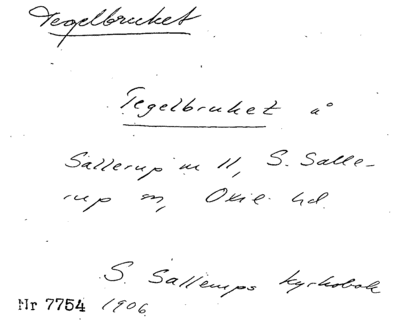 Tegelbruket
Tegelbruket å
Sallerup nr 11, S. Salle-
rup sn, Oxie hd.
S. Sallerups kyrkobok
Nr 7754 1906